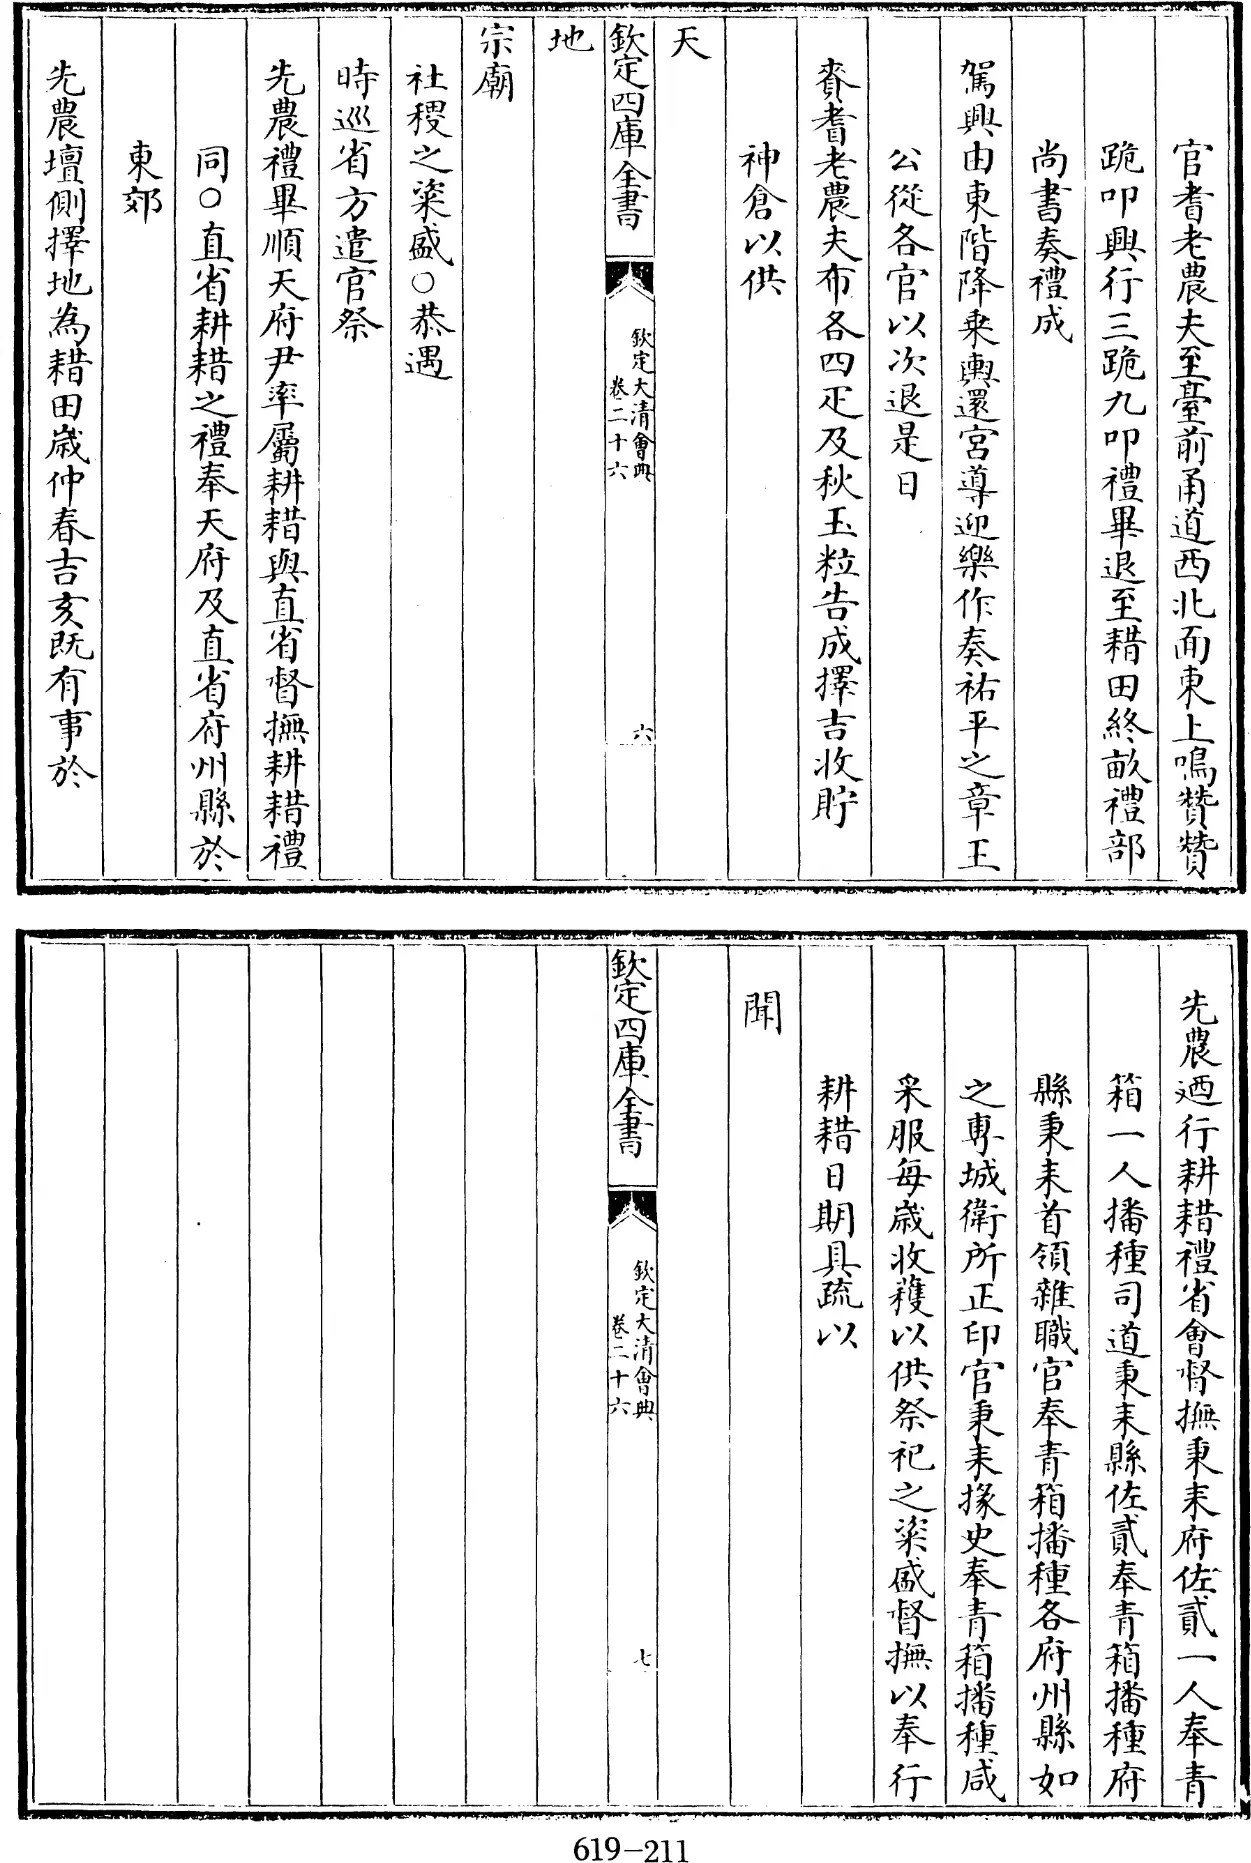 官耆老農夫至臺前甬道西北面東上鳴贊贊
跪叩興行三跪九叩禮畢退至耤田終畝禮部
尚書奏禮成
駕興由東階降乘輿還宮導迎樂作奏祐平之章王
公從各官以次退是日
賚耆老農夫布各四疋及秋玉粒告成擇吉收貯
神倉以供
天
欽定四庫全書
欽定大清會典
卷二十六
六
地
宗廟
社稷之粢盛○恭遇
時巡省方遣官祭
先農禮畢順天府尹率屬耕耤與直省督撫耕耤禮
同○直省耕耤之禮奉天府及直省府州縣於
東郊
先農壇側擇地為耤田歲仲春吉亥既有事於
先農廼行耕耤禮省會督撫秉耒府佐貳一人奉青
箱一人播種司道秉耒縣佐貳奉青箱播種府
縣秉耒首領雜職官奉青箱播種各府州縣如
之專城衛所正印官秉耒掾史奉青箱播種咸
采服每歲收穫以供祭祀之粢盛督撫以奉行
耕耤日期具疏以
聞
欽定四庫全書
欽定大清會典
卷二十六
七
619-211